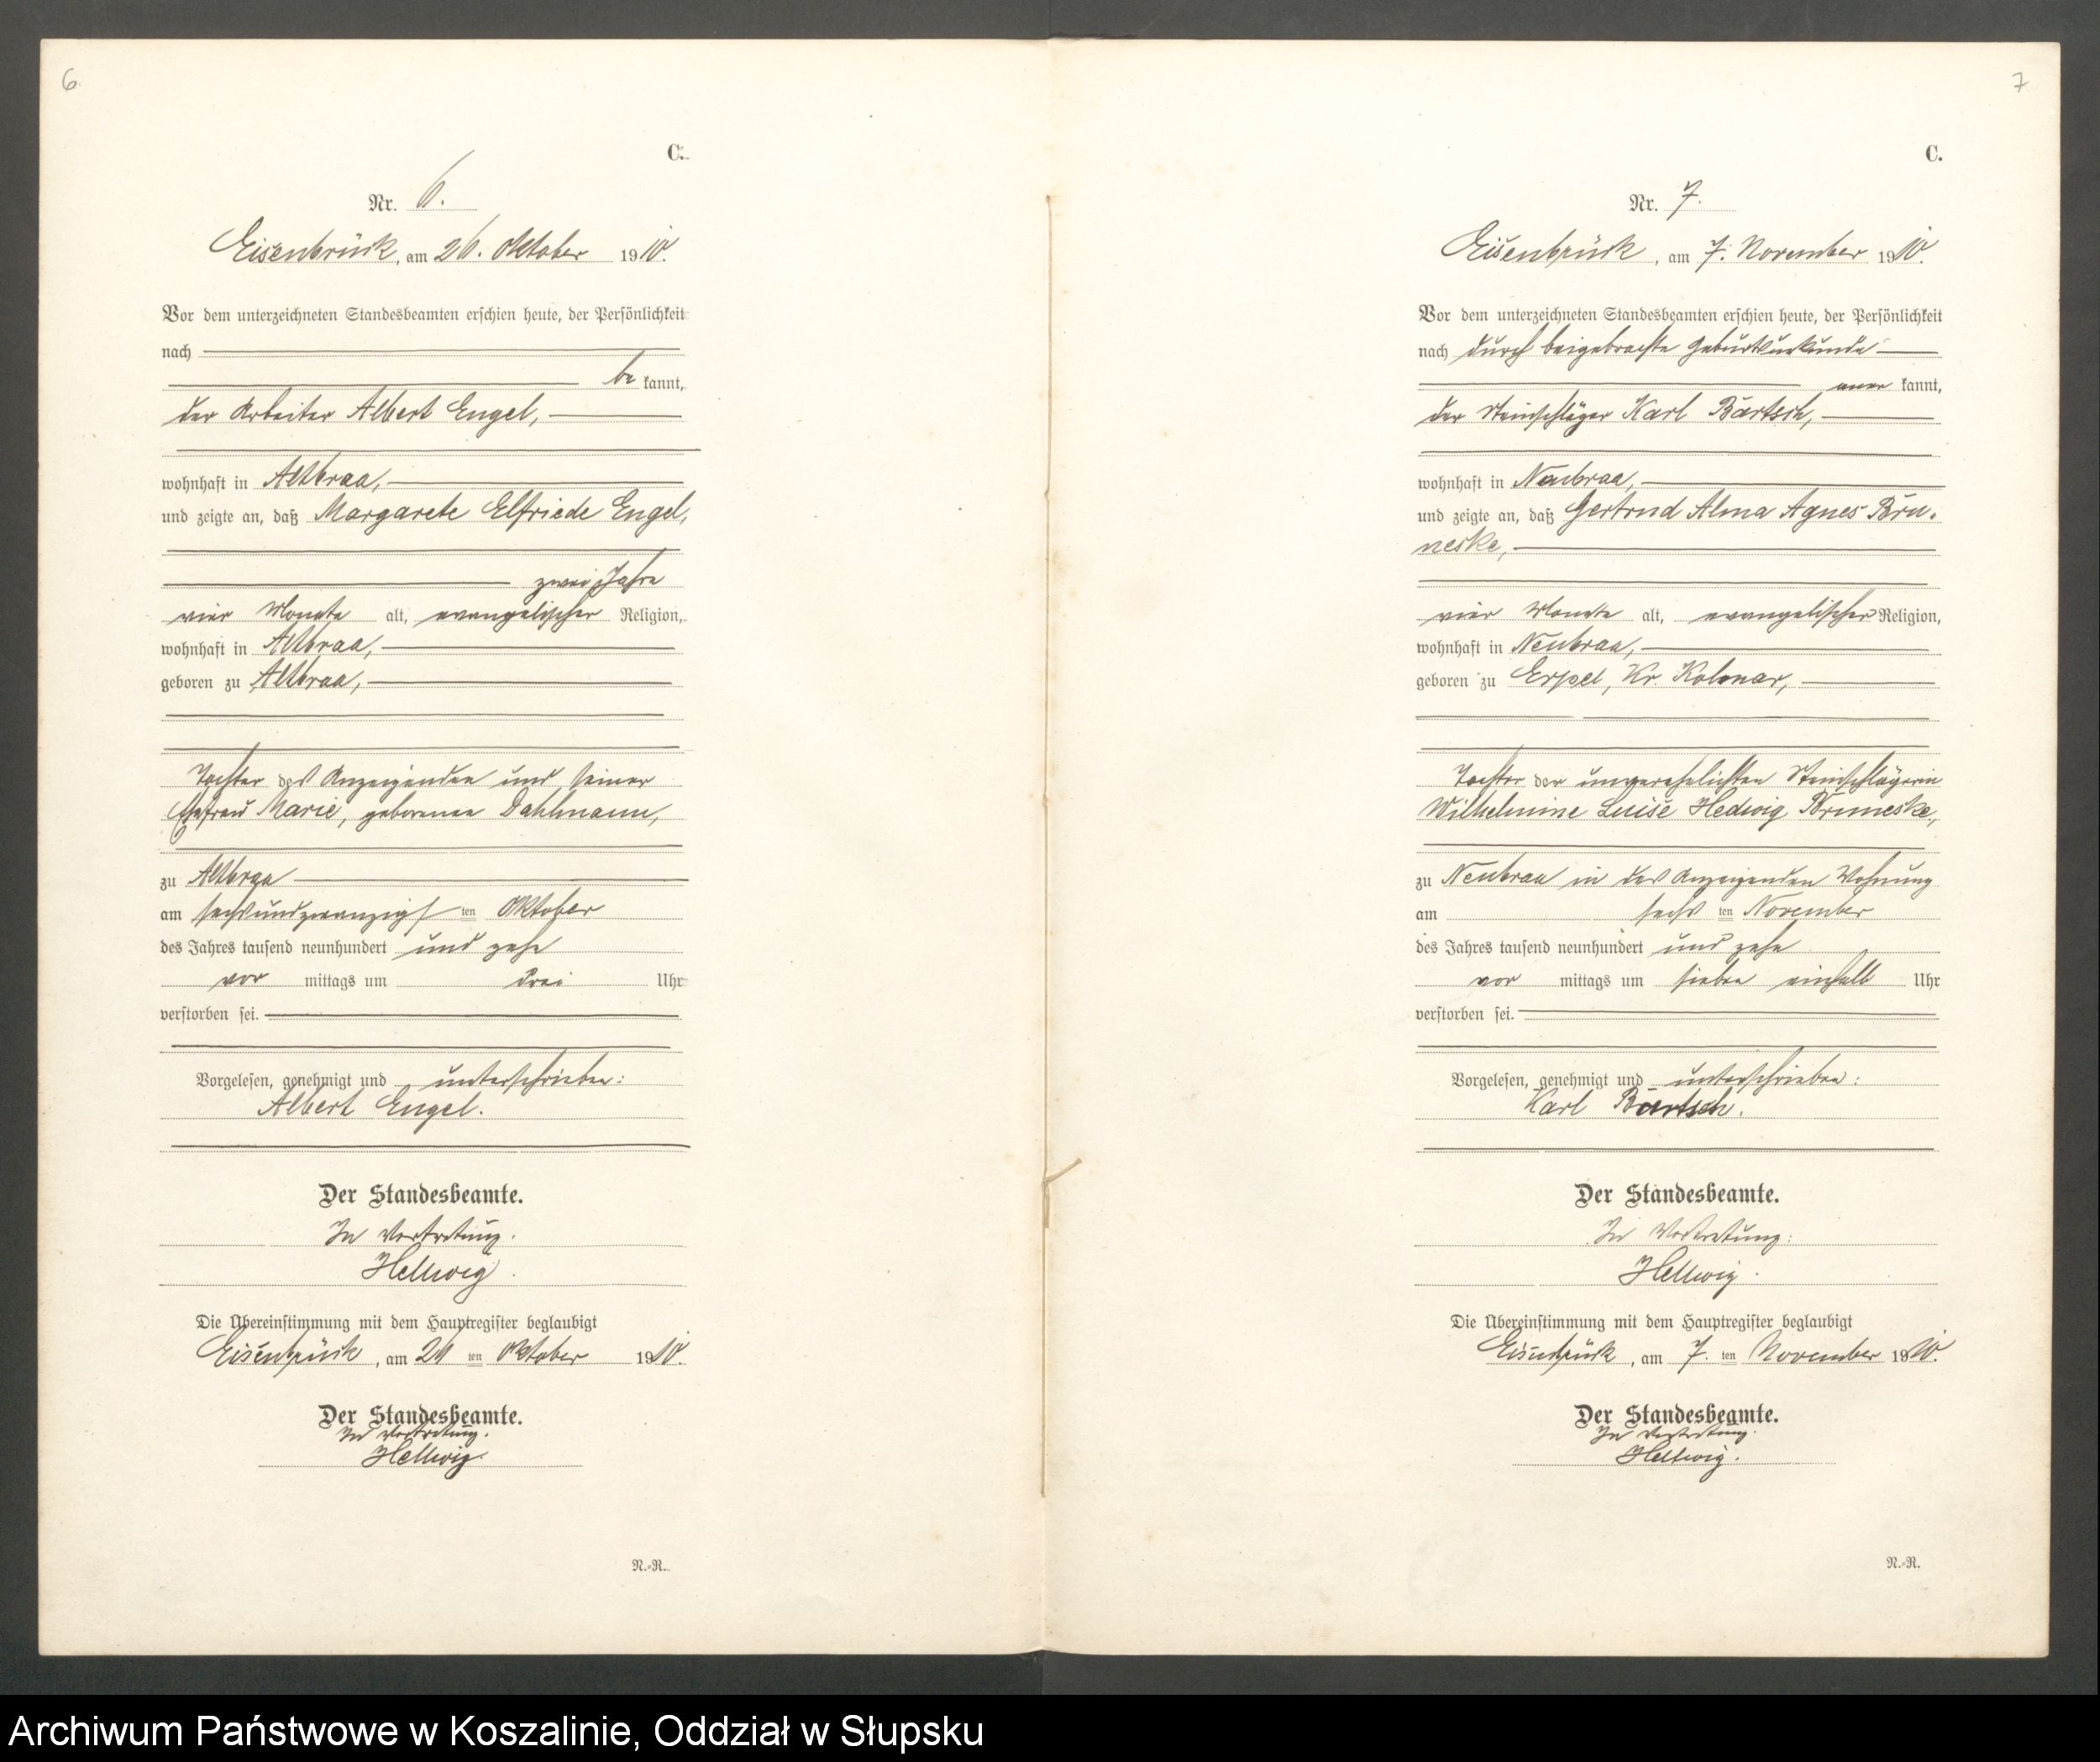 6
C.
Nr. 6.
Eisenbrück, am 26. Oktober 1910.
Vor dem unterzeichneten Standesbeamten erschien heute, der Persönlichkeit
nach
be kannt,
der Arbeiter Albert Engel,
wohnhaft in Altbraa,
und zeigte an, daß Margarete Elfriede Engel,
zwei Jahre
vier Monate alt, evangelischer Religion,
wohnhaft in Altbraa,
geboren zu Altbraa,
Tochter des Anzeigenden und seiner
Ehefrau Marie, geborenen Dahlmann,
zu Altbraa
am sechsundzwanzigsten Oktober
des Jahres tausend neunhundert und zehn
vor mittags um drei Uhr
verstorben sei.
Vorgelesen, genehmigt und unterschrieben:
Albert Engel.
Der Standesbeamte.
In Vertretung.
Hellwig.
Die Übereinstimmung mit dem Hauptregister beglaubigt
Eisenbrück, am 26 ten Oktober 1910.
Der Standesbeamte.
In Vertretung.
Hellwig.
N.-R.
7
C.
Nr. 7.
Eisenbrück, am 7. November 1910.
Vor dem unterzeichneten Standesbeamten erschien heute, der Persönlichkeit
nach durch beigebrachte Geburtsurkunde
aner kannt,
der Steinschläger Karl Bartsch,
wohnhaft in Neubraa,
und zeigte an, daß Gertrud Alma Agnes Brü-
neske,
vier Monate alt, evangelischer Religion,
wohnhaft in Neubraa,
geboren zu Erpel, Kr. Kolmar,
Tochter der unverehelichten Steinschlägerin
Wilhelmine Luise Hedwig Brüneske,
zu Neubraa in des Anzeigenden Wohnung
am sechs ten November
des Jahres tausend neunhundert und zehn
vor mittags um sieben einhalb Uhr
verstorben sei.
Vorgelesen, genehmigt und unterschrieben:
Karl Bartsch.
Der Standesbeamte.
In Vertretung:
Hellwig.
Die Übereinstimmung mit dem Hauptregister beglaubigt
Eisenbrück, am 7. ten November 1910.
Der Standesbeamte.
In Vertretung.
Hellwig.
N.-R.
Archiwum Państwowe w Koszalinie, Oddział w Słupsku